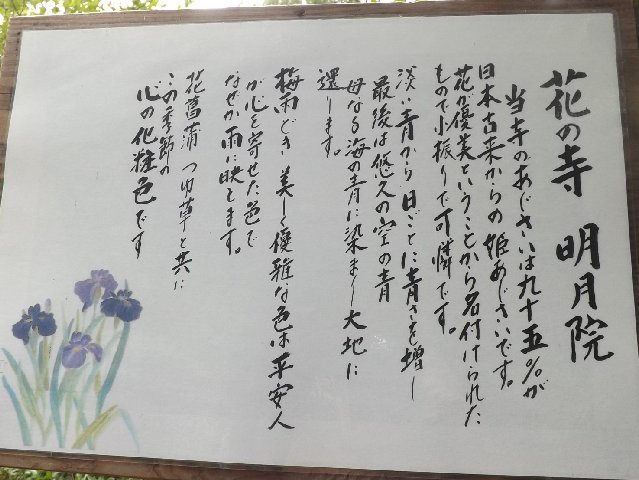 花の寺 明月院
当寺のあじさいは九十五%が
日本古来からの姫あじさいです。
花が優美ということから名付けられた
もので小振りで可憐です。
淡い青から日ごとに青さを増し
最後は悠久の空の青
母なる海の青に染まり大地に
還ります。
梅雨どき美しく優雅な色は平安人
が心を寄せた色で
なぜか雨に映えます。
花菖蒲 つゆ草と共に
この季節の
心の化粧色です